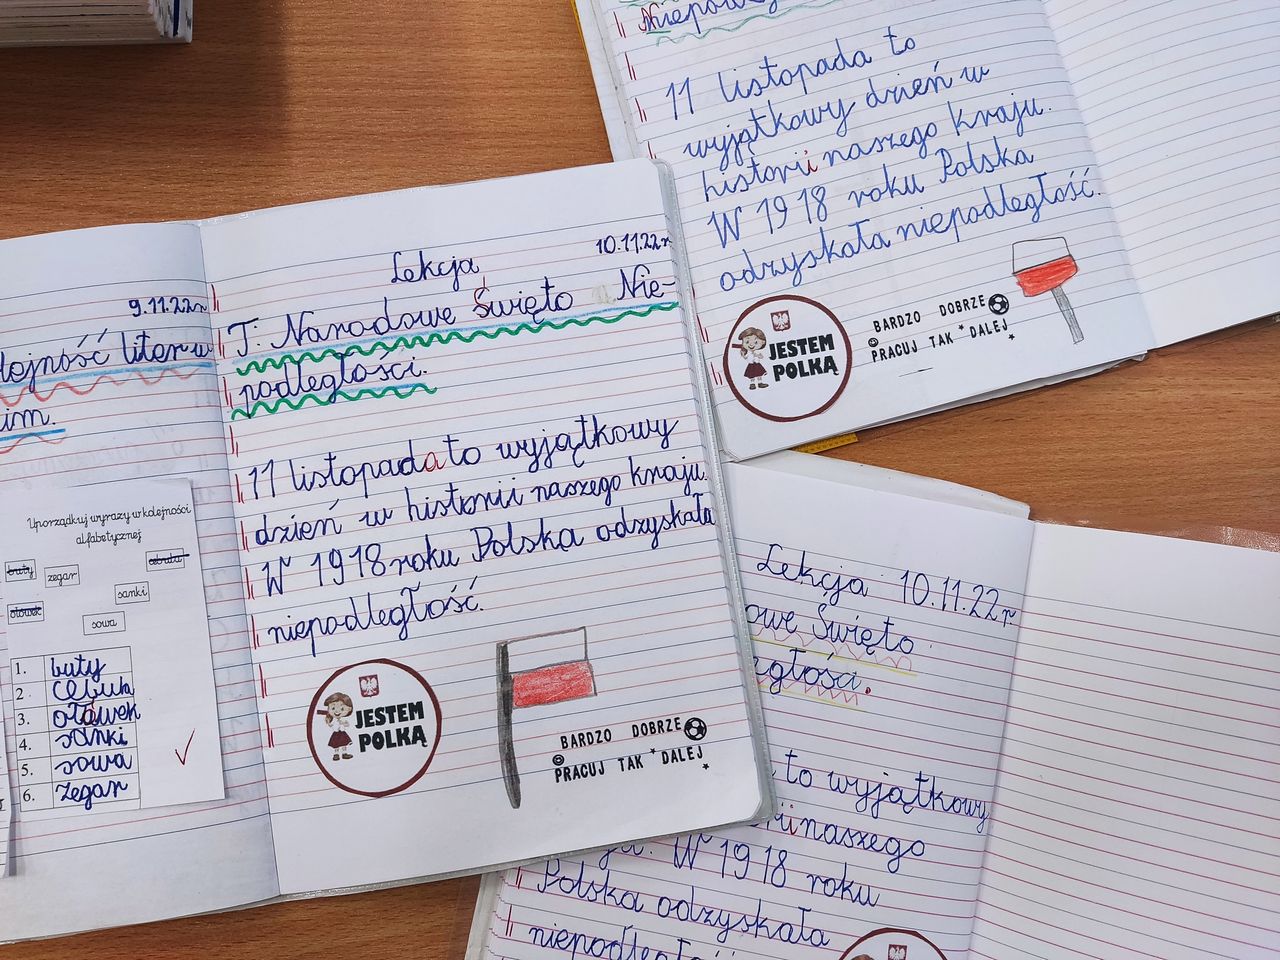 9.11.22r
lejność liter w
im.
Uporządkuj wyrazy w kolejności
alfabetycznej
buty
zegar
cebula
sanki
ołówek
sowa
1. buty
2. cebula
3. ołówek
4. sanki
5. sowa
6. zegar
Lekcja 10.11.22r
T: Narodowe Święto Nie-
podległości.
11 listopada to wyjątkowy
dzień w historii naszego kraju.
W 1918 roku Polska odzyskała
niepodległość.
JESTEM
POLKĄ
BARDZO DOBRZE
PRACUJ TAK DALEJ
11 listopada to
wyjątkowy dzień w
historii naszego kraju.
W 1918 roku Polska
odzyskała niepodległość.
JESTEM
POLKĄ
BARDZO DOBRZE
PRACUJ TAK DALEJ
Lekcja 10.11.22r
owe Święto
głości.
to wyjątkowy
ii naszego
W 1918 roku
Polska odzyskała
niepodległość